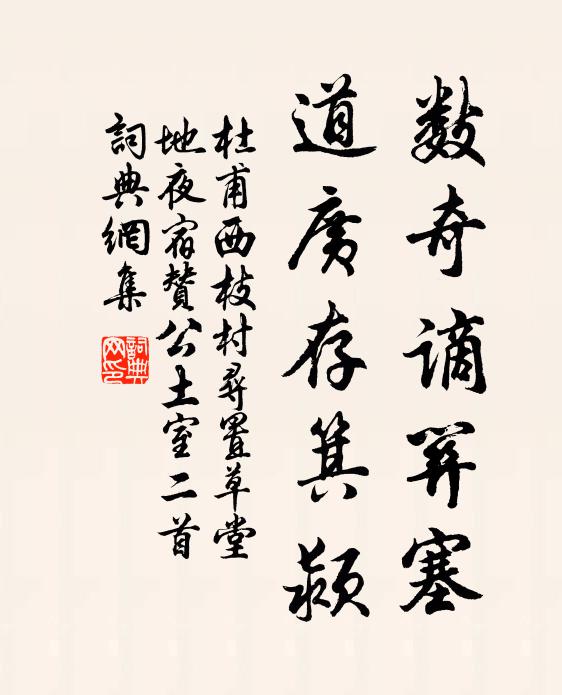 數奇謫關塞
道廣存箕潁
杜甫西枝村尋置草堂
地夜宿贊公土室二首
詞典網集
詞典
网印